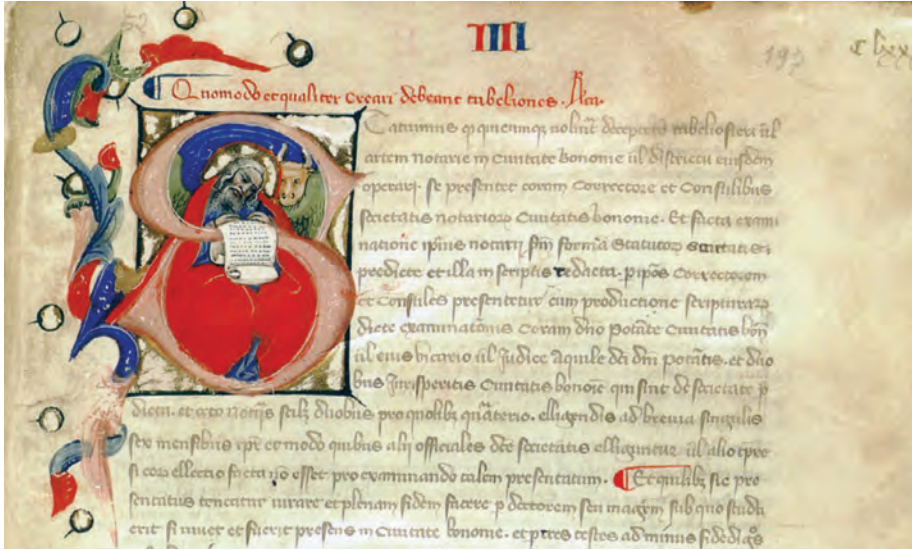 52
IIII
193
C lxxx
Quomodo et qualiter creari debeant tabeliones. Rca.
Statuimus q quicumq voluit decepto tabeliose il
artem notarie in Civitate bononie ul districtu eiusdem
operari. se presentet coram Correctore et Consulibus
societatis notarioz Civitatis bononie. Et facta exami
natione ipius notarij. sm formam Statutoz societatis
predicte et illa in scriptis redacta. p ipos Correctorem
et Consules presentetur cum productione scripturaz
dicte examinationis Coram dno Potate Civitatis bon
ul eius vicario ul Judice Aquile dci dni potatis. et duo
bus Jurisperitis Civitatis bonoie qui sint de societate p
dicta. et octo notijs scilz duobus pro quolibz quaterio. elligendis ad brevia singulis
sex mensibus et modo quibus alij officiales dce societatis elliguntur ul alio
si eoz ellectio facta no esset pro examinando talem presentatum. Et quilibz sic pre
sentatus teneatur iurare et plenam fidem facere p doctorem seu magrm sub quo studu
erit si vivet et fuerit presens in Civitate bononie. et p tres testes ad minus fidedigos